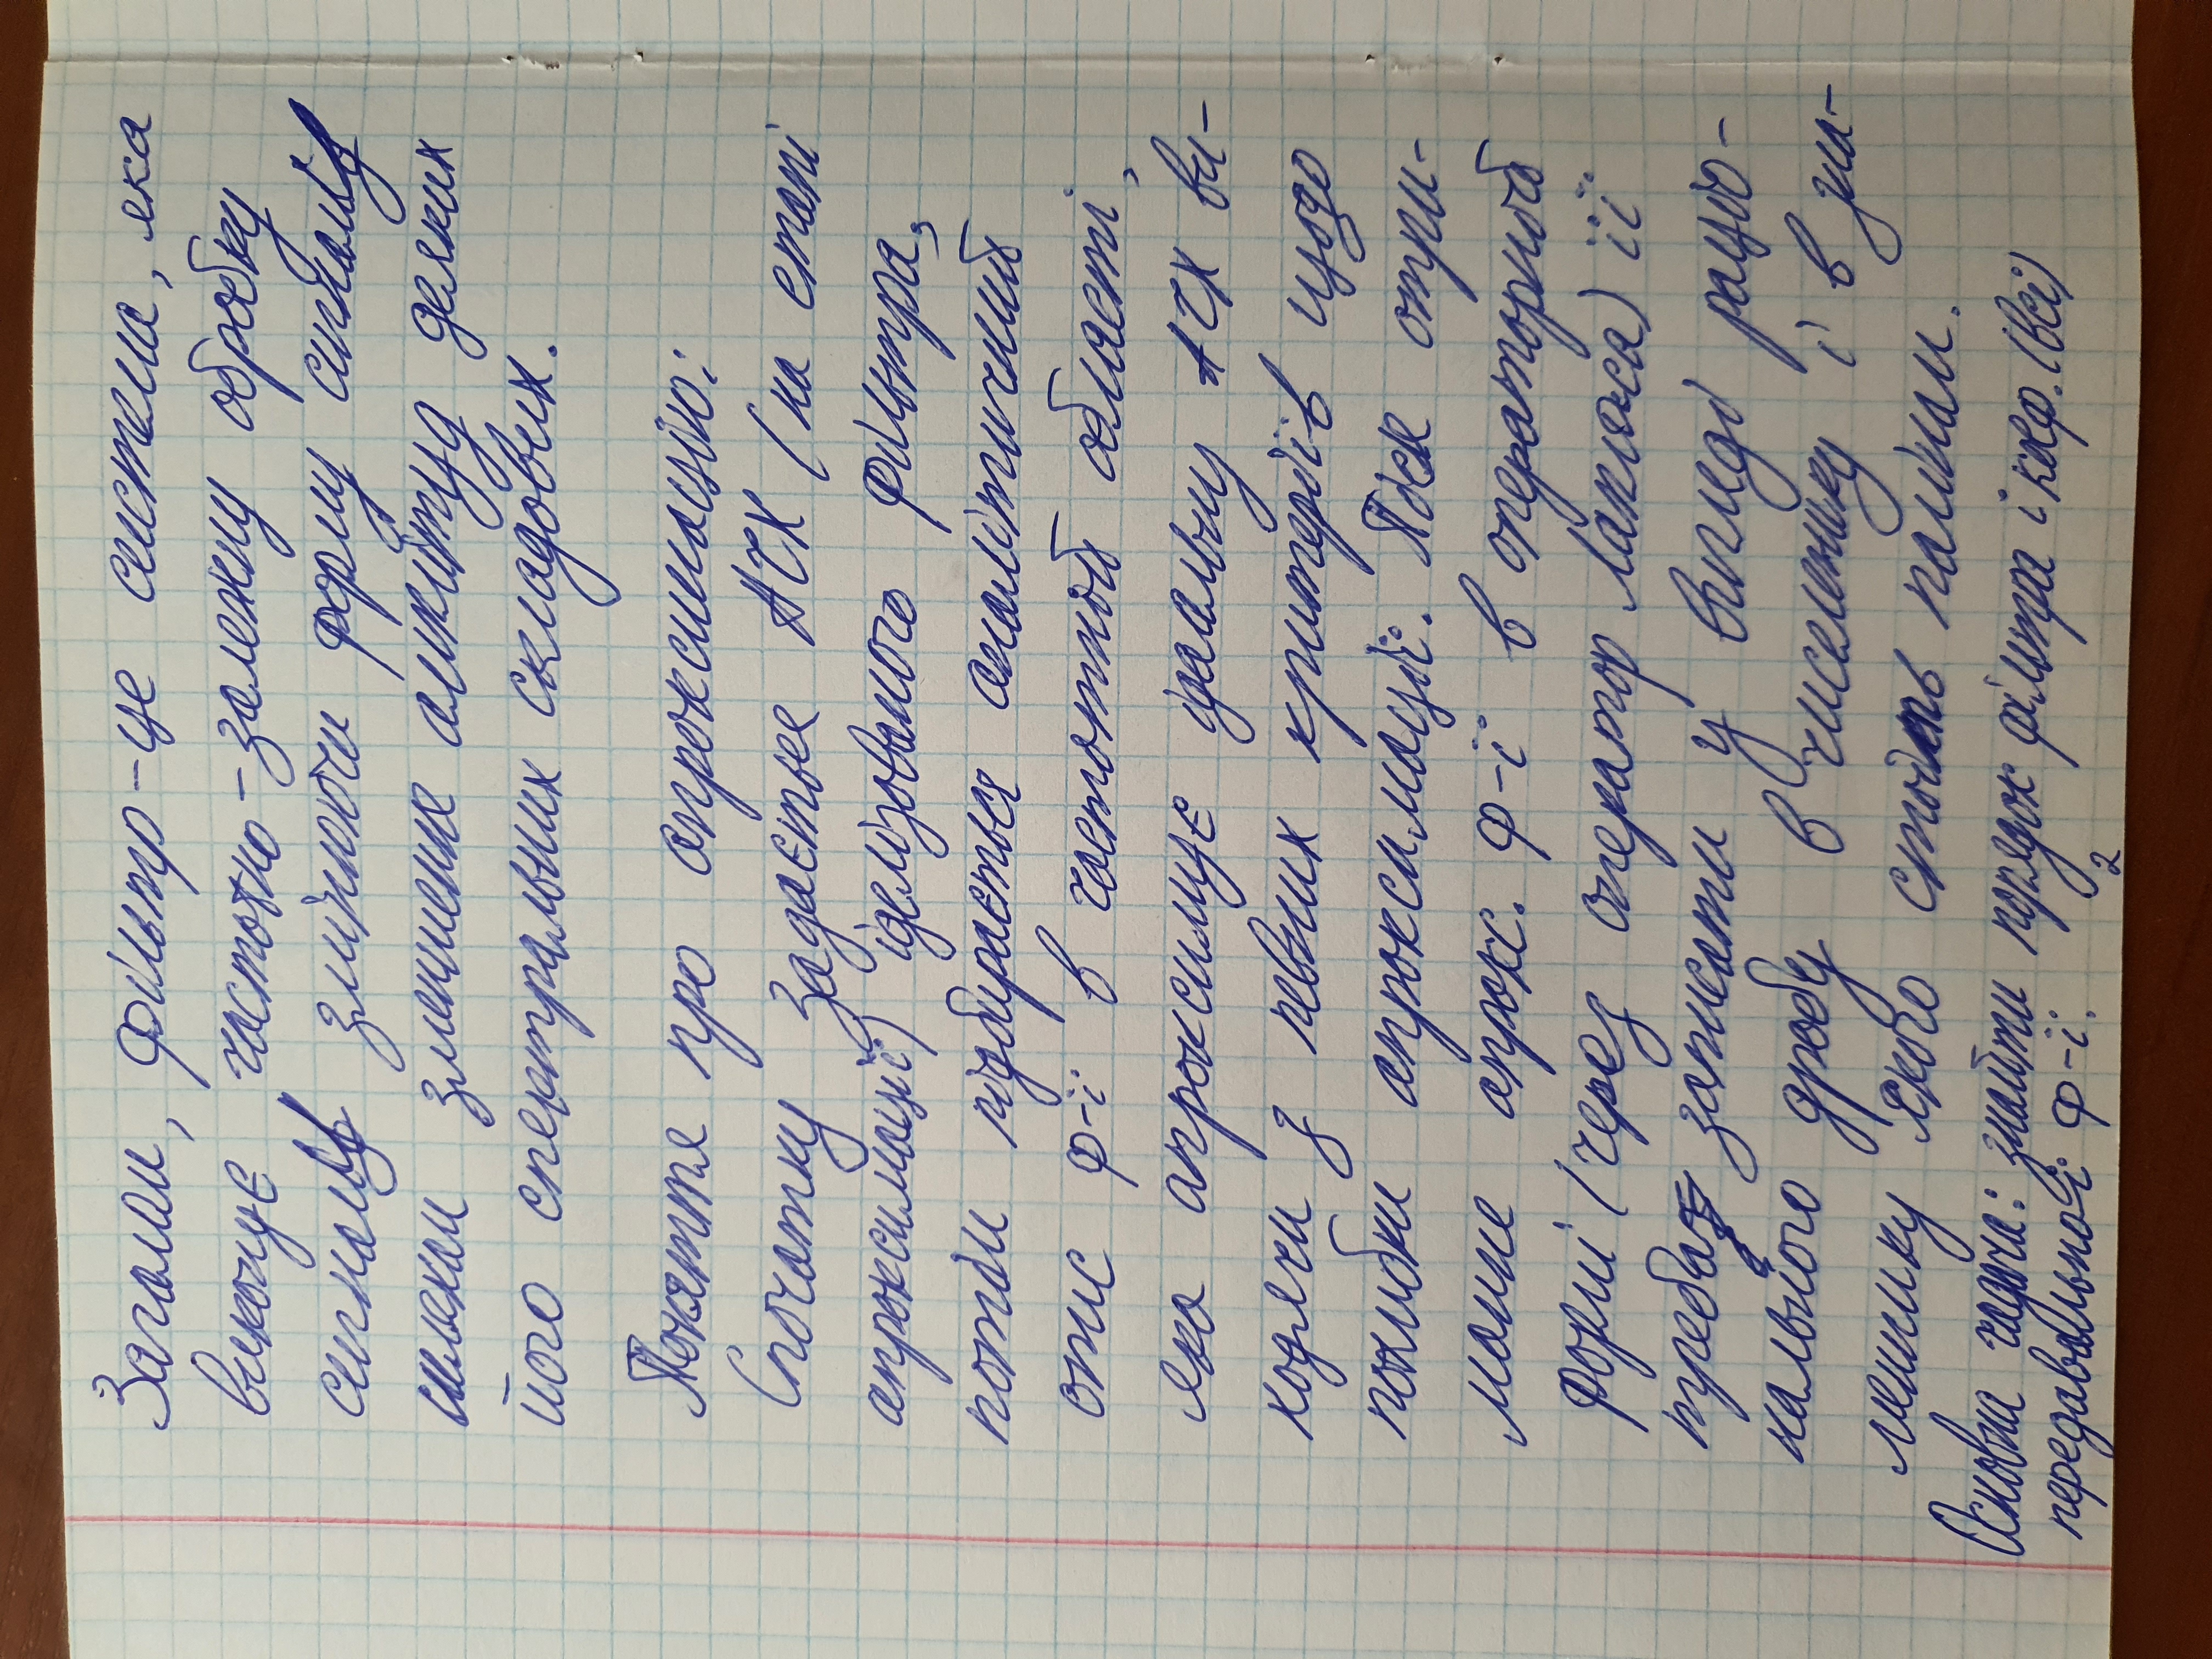 Загалом, фільтр – це система, яка
виконує частотно-залежну обробку
сигналів змінюючи форму сигналів
шляхом зменшення амплітуд деяких
його спектральних складових.
Поняття про апроксимацію:
Спочатку задається АЧХ (на етапі
апроксимації) ідеалізованого фільтра,
потім підбирається аналітичний
опис ф-ї в частотній області,
яка апроксимує ідеальну АЧХ ви-
ходячи з певних критеріїв щодо
похибки апроксимації. Після отри-
мання апрокс. ф-ї в операторній
формі (через оператор Лапласа) її
треба записати у вигляді раціо-
нального дробу в чисельнику і в зна-
меннику якого стоїть поліном.
Основна задача: знайти порядок фільтра і коеф. (всі)
передавальної ф-ї.
2